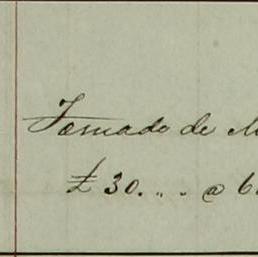 Tomado de M
£ 30. . . @ 6